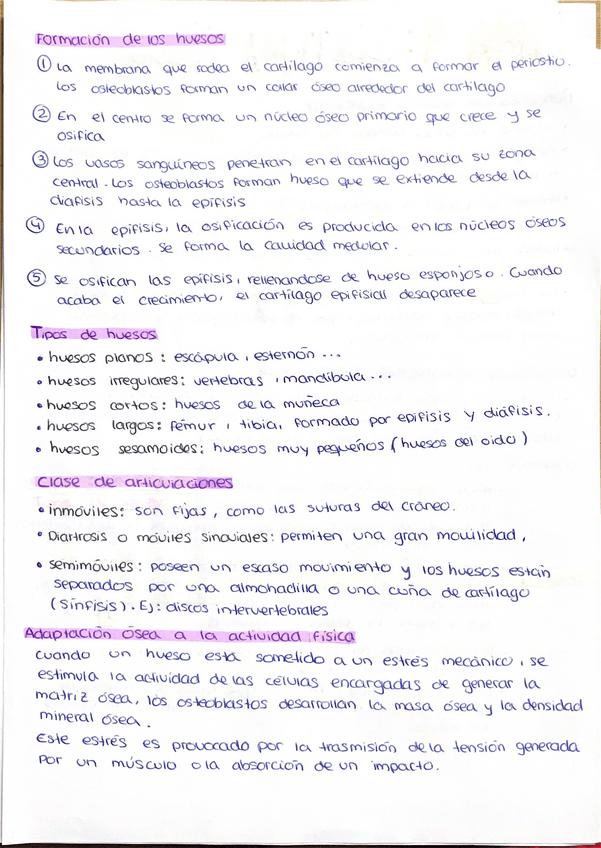 Formación de los huesos
① La membrana que rodea el cartílago comienza a formar el periostio.
Los osteoblastos forman un collar óseo alrededor del cartílago
② En el centro se forma un núcleo óseo primario que crece y se
osifica
③ Los vasos sanguíneos penetran en el cartílago hacia su zona
central. Los osteoblastos forman hueso que se extiende desde la
diáfisis hasta la epífisis
④ En la epífisis, la osificación es producida en los núcleos óseos
secundarios. Se forma la cavidad medular.
⑤ Se osifican las epífisis, rellenandose de hueso esponjoso. Cuando
acaba el crecimiento, el cartílago epifisial desaparece
Tipos de huesos
• huesos planos: escápula, esternón ...
• huesos irregulares: vertebras, mandíbula...
• huesos cortos: huesos de la muñeca
• huesos largos: fémur, tibia, formado por epífisis y diáfisis.
• huesos sesamoides: huesos muy pequeños (huesos del oído)
Clase de articulaciones
• inmóviles: son fijas, como las suturas del cráneo.
• Diartrosis o móviles sinoviales: permiten una gran movilidad,
• semimóviles: poseen un escaso movimiento y los huesos están
separados por una almohadilla o una cuña de cartílago
(sínfisis). Ej: discos intervertebrales
Adaptación ósea a la actividad física
cuando un hueso está sometido a un estrés mecánico, se
estimula la actividad de las células encargadas de generar la
matriz ósea, los osteoblastos desarrollan la masa ósea y la densidad
mineral ósea.
Este estrés es provocado por la trasmisión de la tensión generada
por un músculo o la absorción de un impacto.